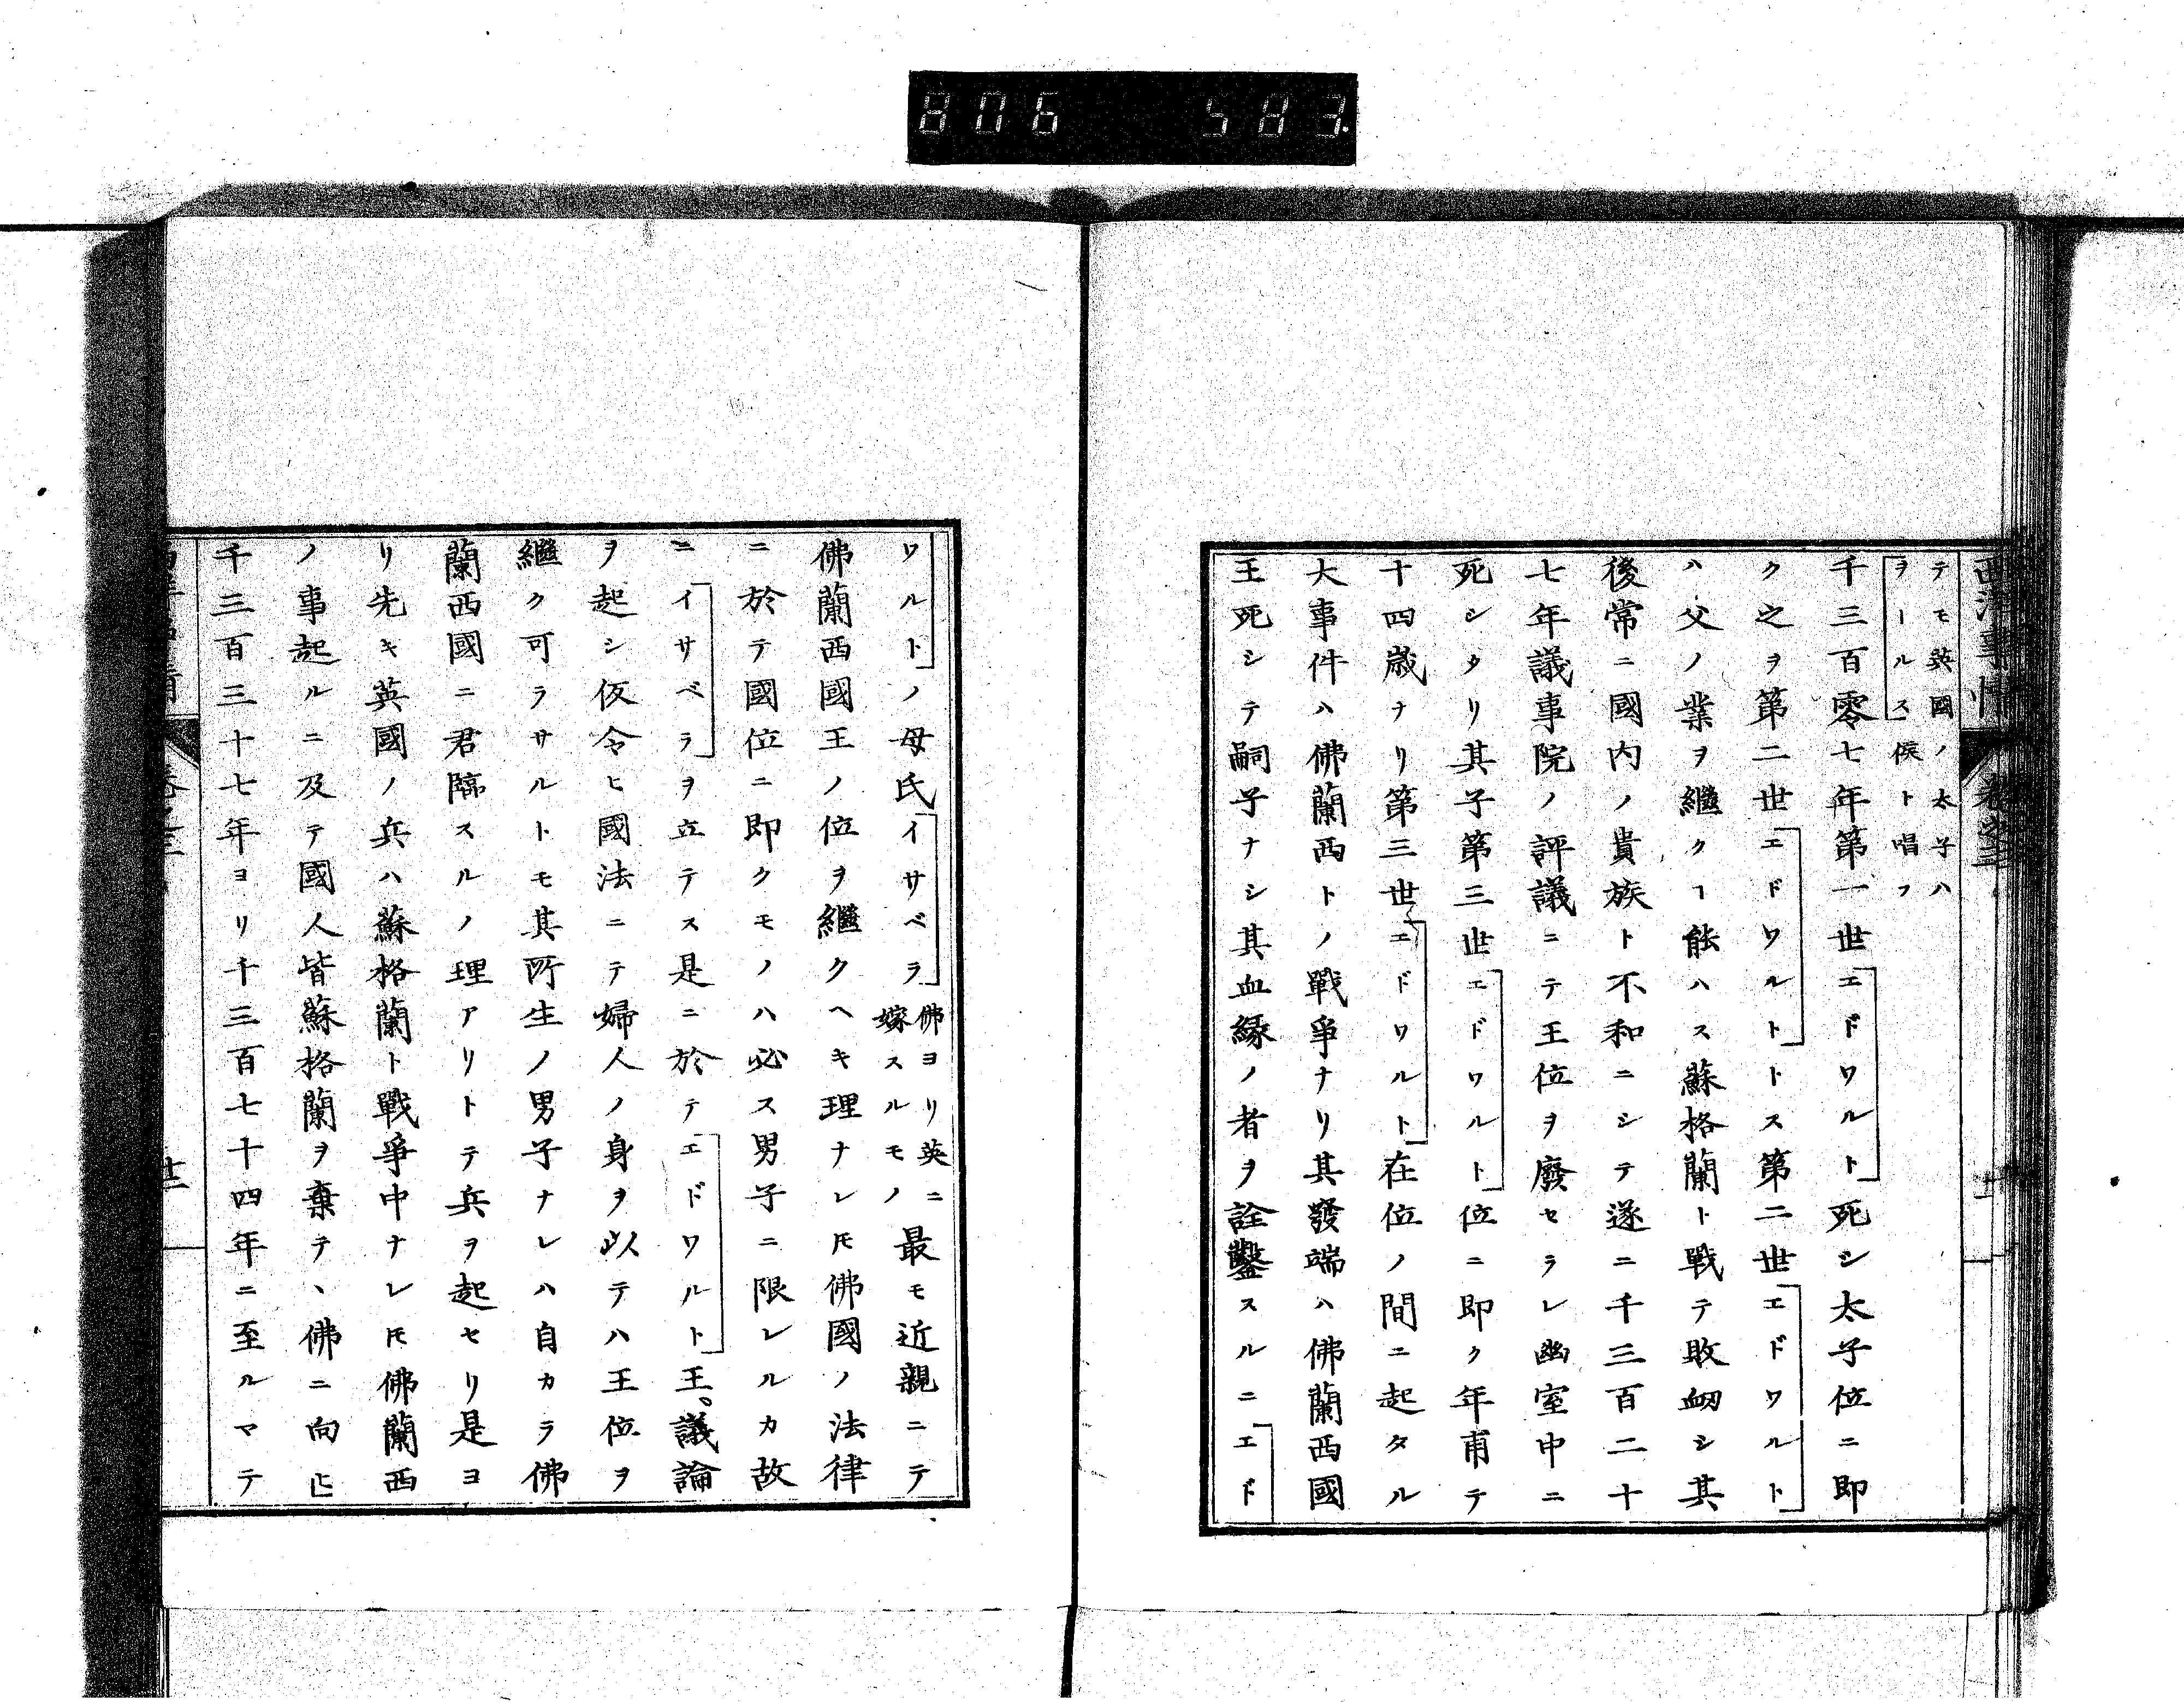 806 583.
西洋事情
テモ英國ノ太子ハ
「ヲールス」候ト唱フ
千三百零七年第一世「エドワルト」死シ太子位ニ即
ク之ヲ第二世「エドワルト」トス第二世「エドワルト」
ハ父ノ業ヲ繼クヿ能ハス蘇格蘭ト戰テ敗衂シ其
後常ニ國内ノ貴族ト不和ニシテ遂ニ千三百二十
七年議事院ノ評議ニテ王位ヲ廢セラレ幽室中ニ
死シタリ其子第三世「エドワルト」位ニ即ク年甫テ
十四歳ナリ第三世「エドワルト」在位ノ間ニ起タル
大事件ハ佛蘭西トノ戰爭ナリ其發端ハ佛蘭西國
王死シテ嗣子ナシ其血縁ノ者ヲ詮鑿スルニ「エド
ワルト」ノ母氏「イサベラ」佛ヨリ英ニ嫁スルモノ最モ近親ニテ
佛蘭西國王ノ位ヲ繼クヘキ理ナレ𪜈佛國ノ法律
ニ於テ國位ニ即クモノハ必ス男子ニ限レルカ故
ニ「イサベラ」ヲ立テス是ニ於テ「エドワルト」王、議論
ヲ起シ仮令ヒ國法ニテ婦人ノ身ヲ以テハ王位ヲ
繼ク可ラサルトモ其所生ノ男子ナレハ自カラ佛
蘭西國ニ君臨スルノ理アリトテ兵ヲ起セリ是ヨ
リ先キ英國ノ兵ハ蘇格蘭ト戰爭中ナレ𪜈佛蘭西
ノ事起ルニ及テ國人皆蘇格蘭ヲ棄テ、佛ニ向ヒ
千三百三十七年ヨリ千三百七十四年ニ至ルマテ